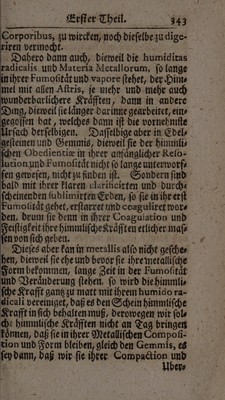 Erster Theil. 343
Corporibus, zu wircken, noch dieselbe zu dige-
riren vermocht.
Dahero dann auch, dieweil die humiditas
radicalis und Materia Metallorum, so lange
in ihrer Fumosität und vapore stehet, der Him-
mel mit allen Astris, je mehr und mehr auch
wunderbarlichere Kräfften, dann in andere
Ding, dieweil sie länger darinne gearbeitet, ein-
gegossen hat, welches dann ist die vornehmste
Ursach derselbigen. Dasselbige aber in Edel-
gesteinen und Gemmis, dieweil sie der himmli-
schen Obedientie in ihrer anfänglicher Reso-
lution und Fumosität nicht so lange unterworf-
fen gewesen, nicht zu finden ist. Sondern sind
bald mit ihrer klaren clarificirten und durch-
scheinenden sublimirten Erden, so sie in ihr erst
Fumosität gehet, erstarret und coaguliret wor-
den. drum sie denn in ihrer Coagulation und
Festigkeit ihre himmlische Kräfften etlicher mas-
sen von sich geben.
Dieses aber kan in metallis also nicht gesche-
hen, dieweil sie ehe und bevor sie ihre metallische
Form bekommen, lange Zeit in der Fumosität
und Veränderung stehen. so wird die himmli-
sche Krafft gantz zu matt mit ihrem humido ra-
dicali vereiniget, daß es den Schein himmlische
Krafft in sich behalten muß, derowegen wir sol-
che himmlische Kräfften nicht an Tag bringen
können, daß sie in ihrer Metallischen Composi-
tion und Form bleiben, gleich den Gemmis, es
sey dann, daß wir sie ihrer Compaction und
Uber-